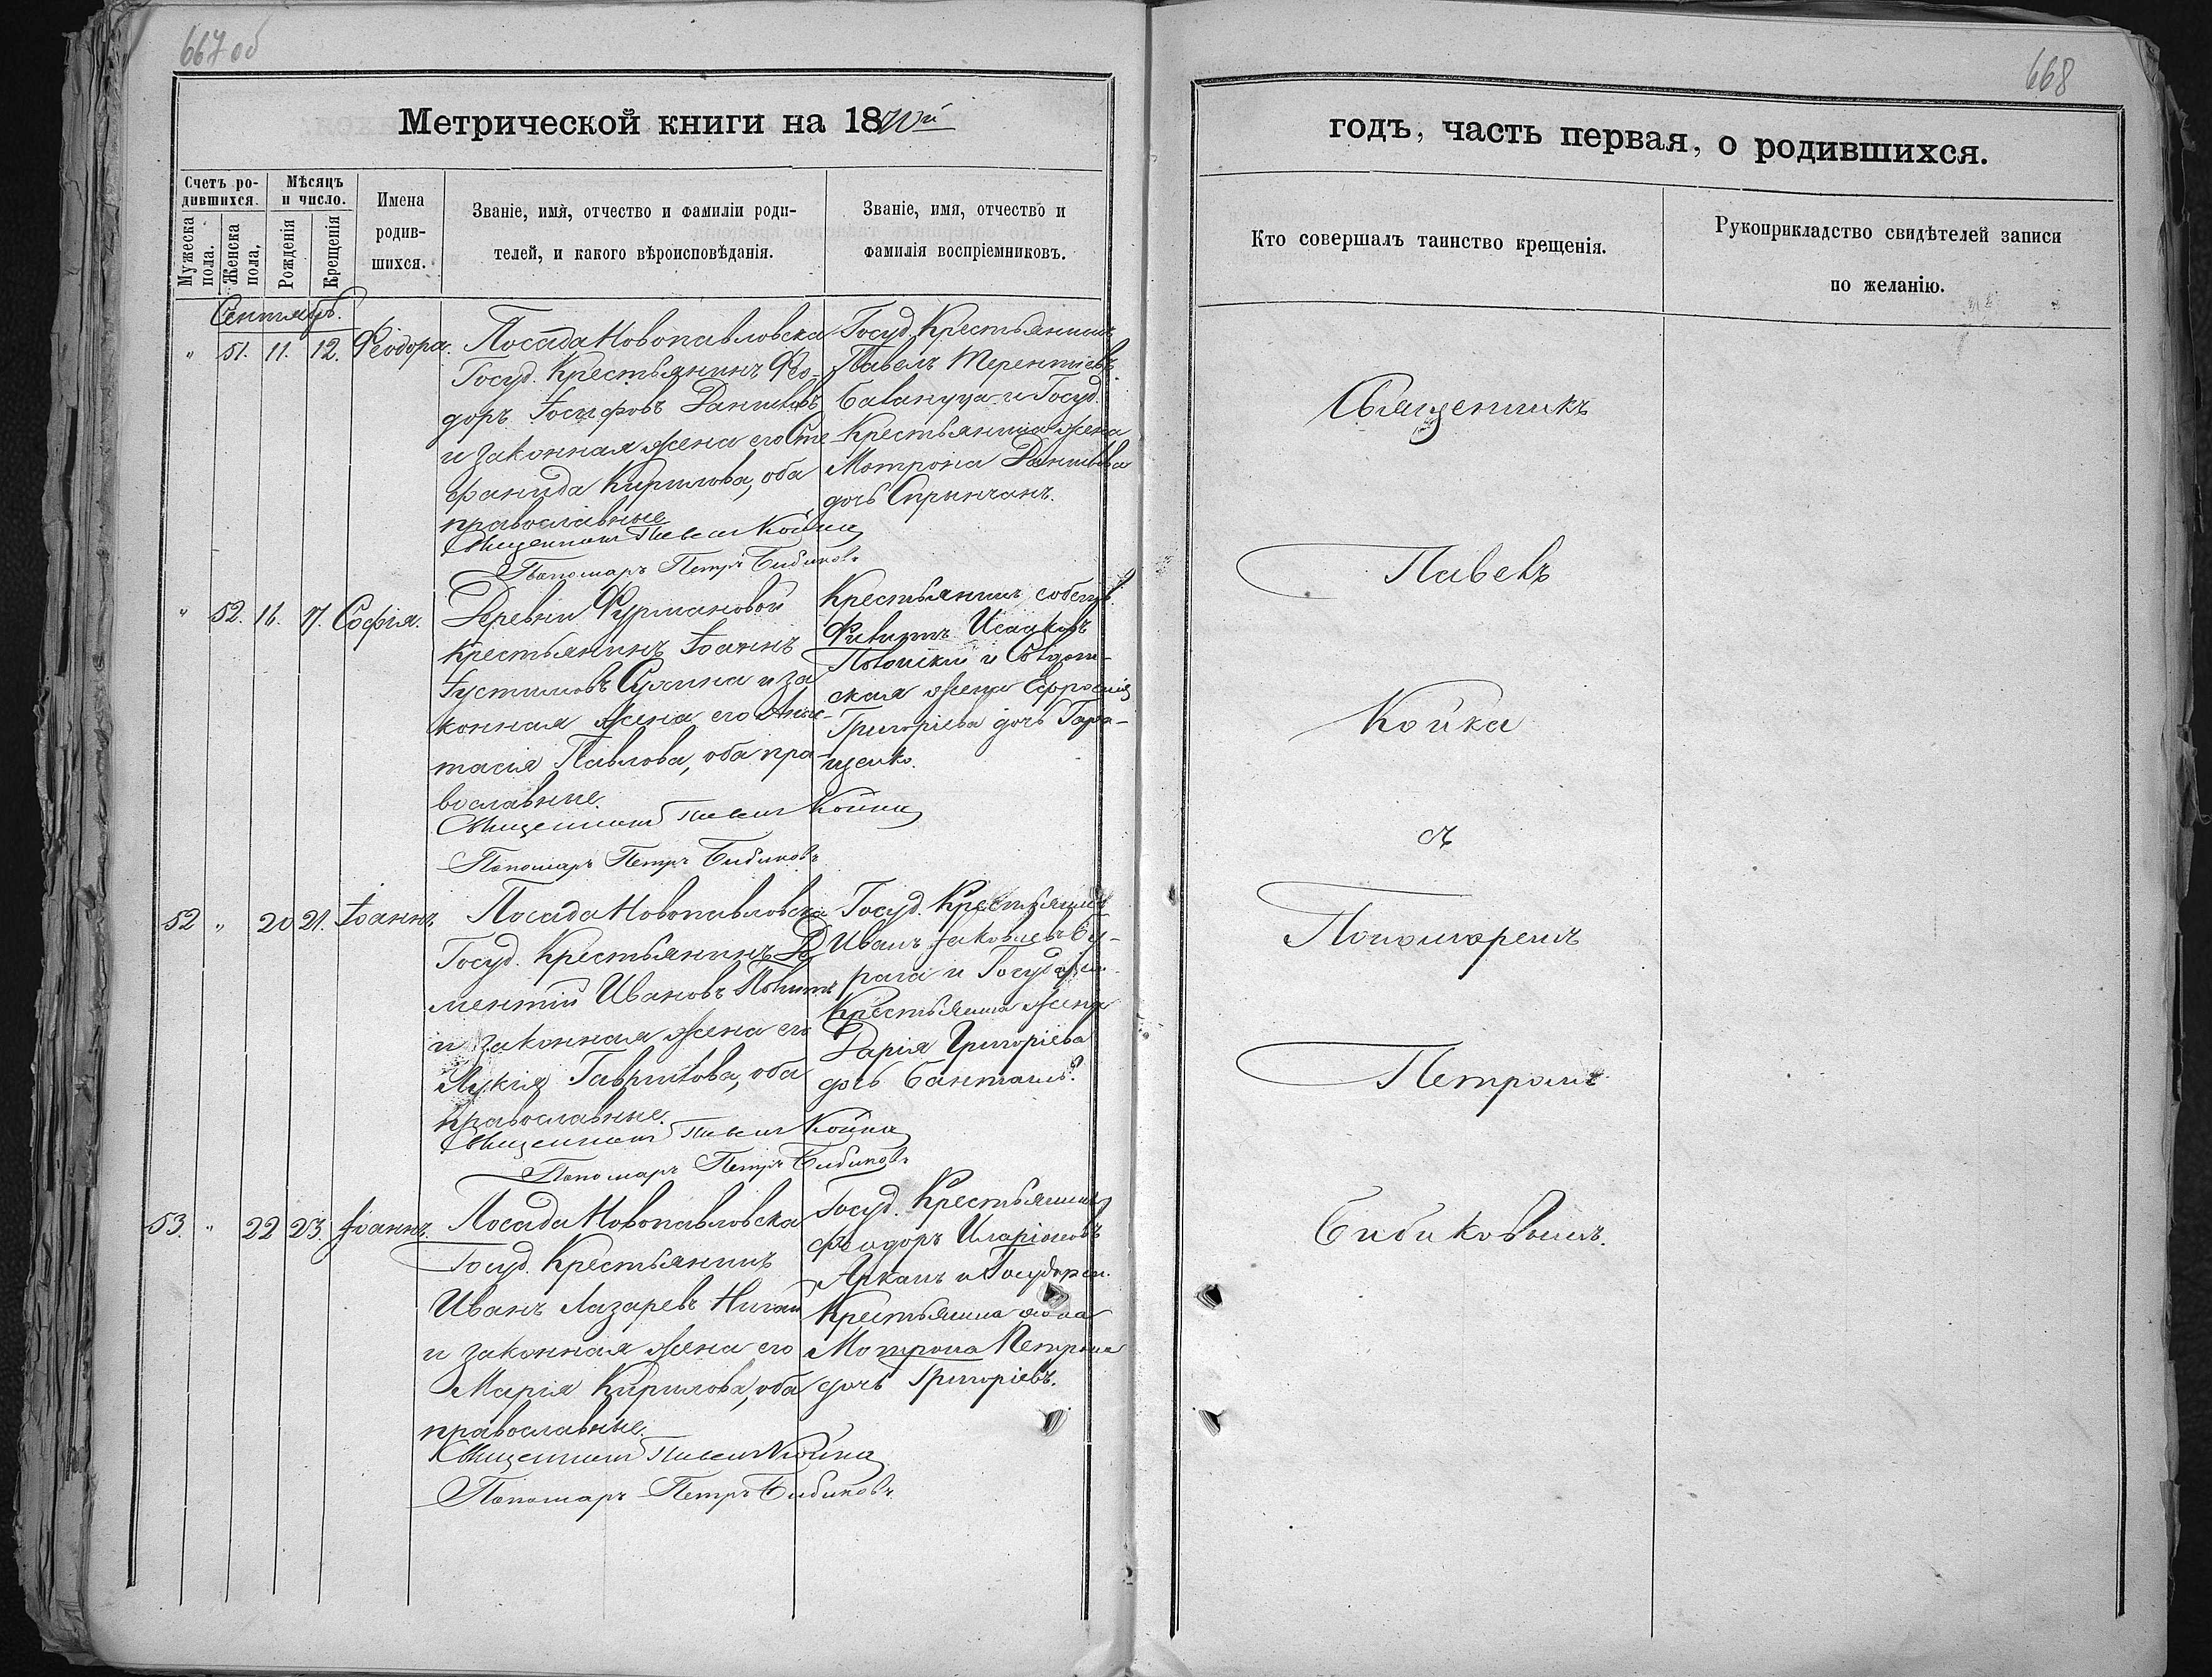 667 об
Метрической книги на 1870й
Счетъ ро-
дившихся.
Мѣсяцъ
и число.
Мужеска
пола.
Женска
пола.
Рожденія
Крещенія
Имена
родив-
шихся.
Званіе, имя, отчество и фамиліи роди-
телей, и какого вѣроисповѣданія.
Званіе, имя, отчество и
фамилія воспріемниковъ.
Сентябрь.
" 51. 11. 12. Феодора.
Посада Новопавловска
Госуд. Крестьянинъ Фео-
доръ Іосифовъ Даниловъ
и законная жена его Сте-
фанида Кирилова, оба
православные
Священникъ Павелъ Койка
Пономарь Петръ Бибиковъ
Госуд. Крестьянинъ
Павелъ Терентіевъ
и Госуд.
Крестьянина жена
Мотрона Данилова
дочь Спрынчанъ.
" 52. 16. 17. Софія.
Деревни Фурмановой
Крестьянинъ Іоаннъ
Іустиновъ и за
конная жена его Анас-
тасія Павлова, оба пра-
вославные.
Священникъ Павелъ Койка
Пономарь Петръ Бибиковъ
Крестьянинъ собств.
Филиппъ Исааковъ
и Солдат-
ская жена Ефросинія
Григоріева дочь Гара-
щенко.
52 " 20 21. Іоаннъ.
Посада Новопавловска
Госуд. Крестьянинъ Де
ментій Ивановъ
и законная жена его
Лукія Гаврилова, оба
православные.
Священникъ Павелъ Койка
Пономарь Петръ Бибиковъ
Госуд. Крестьянинъ
Иванъ Іаковлевъ Бу-
рага и Государ.
Крестьянина жена
Дарія Григоріева
дочь
53. " 22 23. Іоаннъ.
Посада Новопавловска
Госуд. Крестьянинъ
Иванъ Лазаревъ
и законная жена его
Марія Кирилова, оба
православные.
Священникъ Павелъ Койка
Пономарь Петръ Бибиковъ
Госуд. Крестьянинъ
Феодоръ Иларіоновъ
и Государ.
Крестьянина жена
Мотрона Петрова
дочь Григоріевъ.
668
годъ, часть первая, о родившихся.
Кто совершалъ таинство крещенія.
Рукоприкладство свидѣтелей записи
по желанію.
Священникъ
Павелъ
Койка
съ
Пономаремъ
Петромъ
Бибиковымъ.